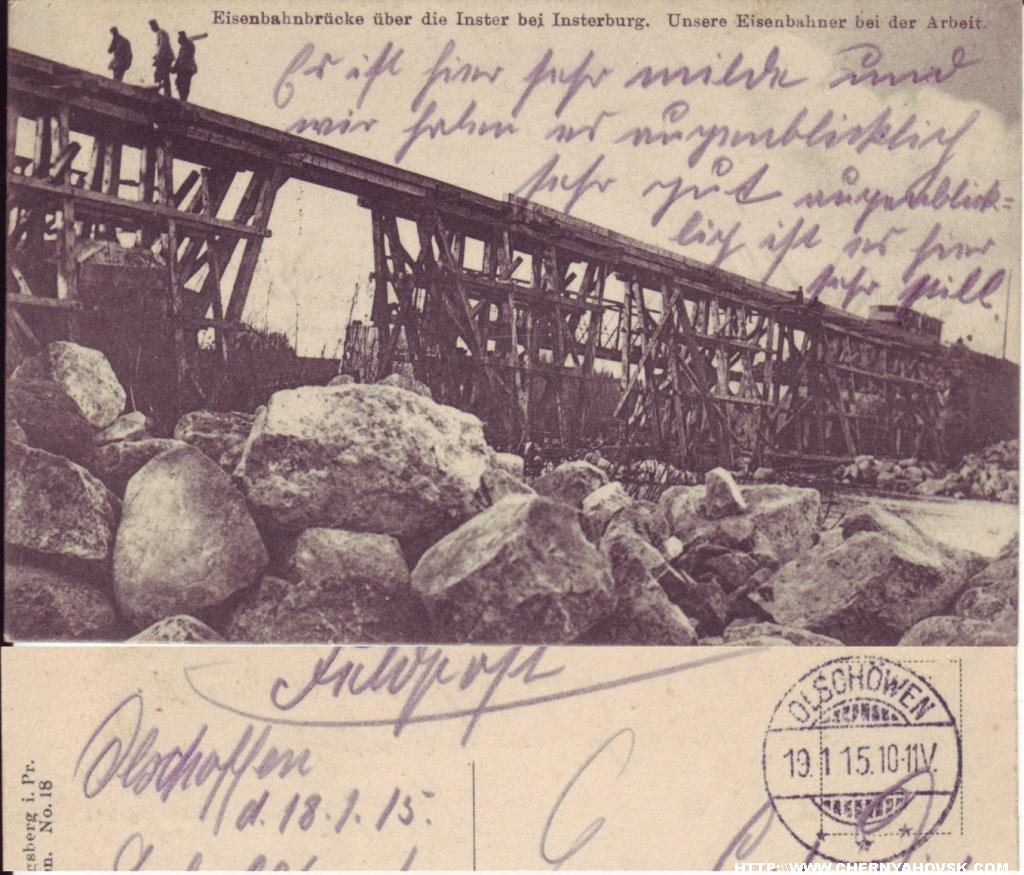 Eisenbahnbrücke über die Inster bei Insterburg. Unsere Eisenbahner bei der Arbeit.
Es ist hier sehr milde und
wir haben es augenblicklich
sehr gut augenblick=
lich ist es hier
sehr still
Feldpost
Olschöffen
d. 18.1.15.
OLSCHÖWEN
19.1 15.10-11V.
gsberg i. Pr.
on. No. 18
HTTP://WWW.CHERNYAHOVSK.COM